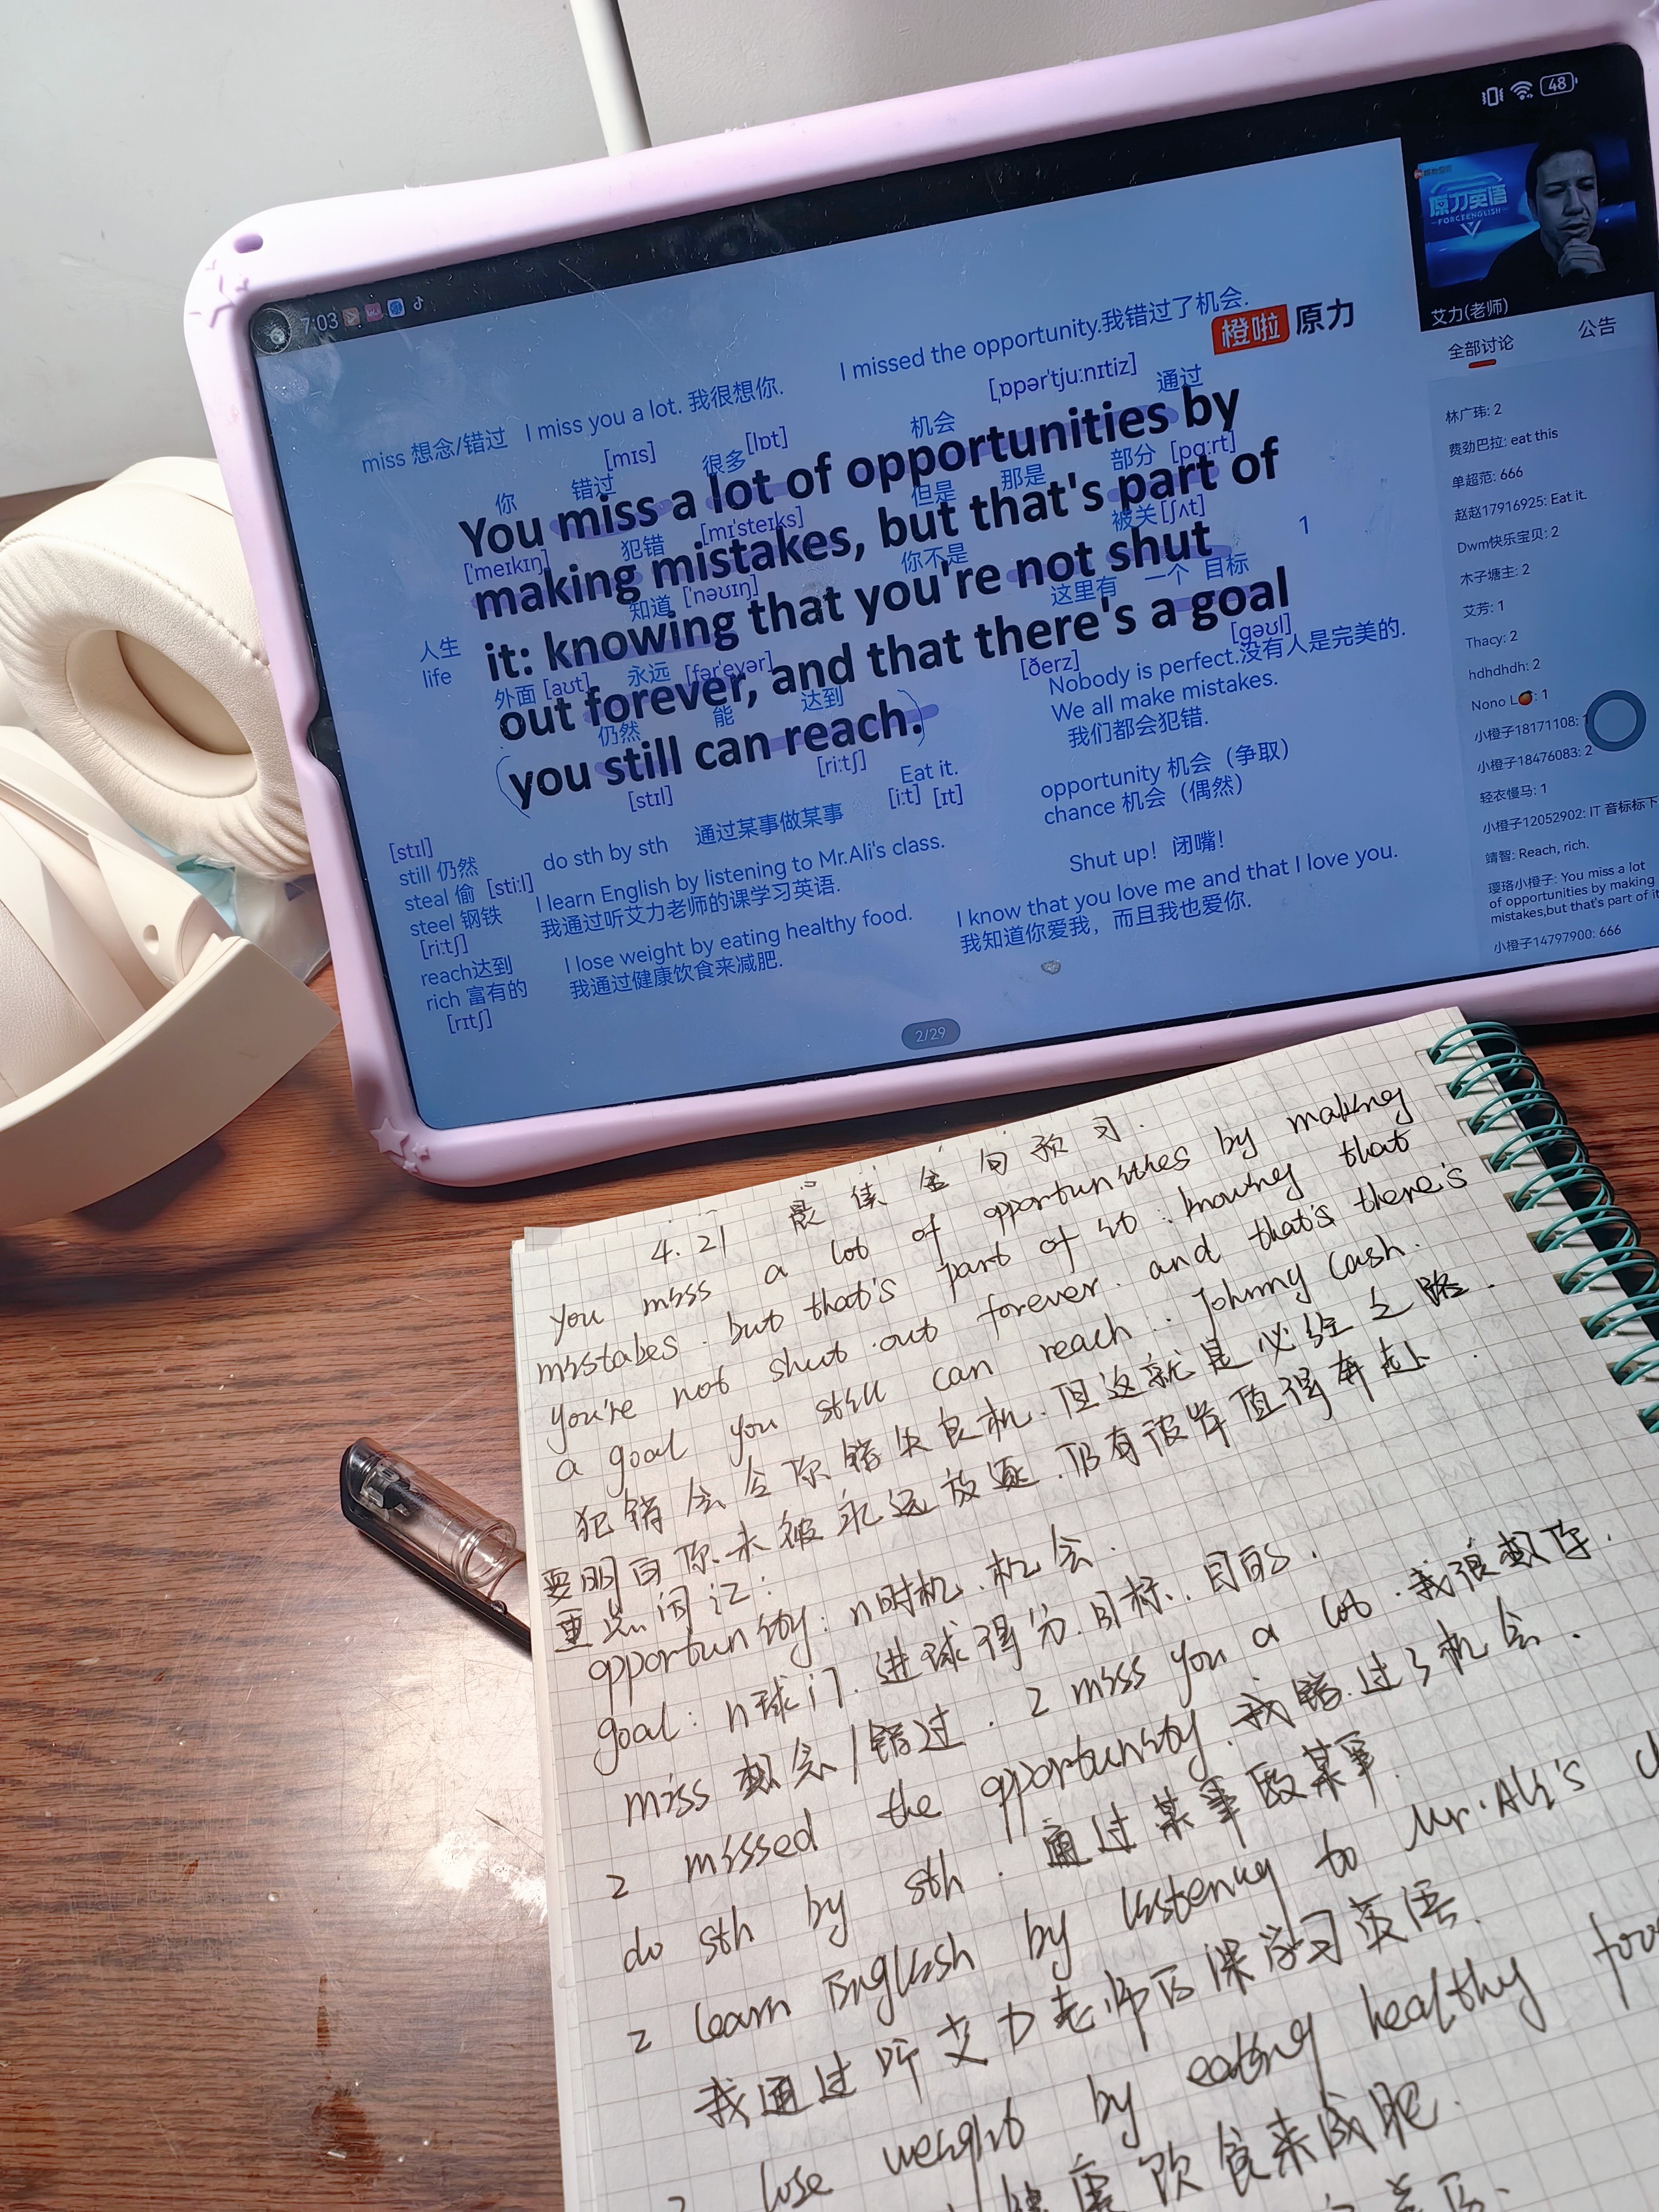 7:03
48
原力英语
FORCEENGLISH
艾力(老师)
全部讨论 公告
橙啦 原力
miss 想念/错过 I miss you a lot. 我很想你. I missed the opportunity.我错过了机会.
[mɪs] [lɒt] [ˌɒpərˈtjuːnɪtiz]
你 错过 很多 机会 通过
You miss a lot of opportunities by
[ˈmeɪkɪŋ] 犯错 [mɪˈsteɪks] 但是 那是 部分 [pɑːrt]
making mistakes, but that's part of
知道 [ˈnəʊɪŋ] 你不是 被关 [ʃʌt] 1
it: knowing that you're not shut
人生
life
外面 [aʊt] 永远 [fərˈevər] 这里有 一个 目标
out forever, and that there's a goal
仍然 能 达到 [ðerz] [gəʊl]
you still can reach.
[stɪl] [riːtʃ]
Nobody is perfect.没有人是完美的.
We all make mistakes.
我们都会犯错.
Eat it.
[iːt] [ɪt]
opportunity 机会（争取）
chance 机会（偶然）
Shut up！闭嘴！
I know that you love me and that I love you.
我知道你爱我，而且我也爱你.
do sth by sth 通过某事做某事
I learn English by listening to Mr.Ali's class.
我通过听艾力老师的课学习英语.
I lose weight by eating healthy food.
我通过健康饮食来减肥.
[stɪl]
still 仍然
steal 偷 [stiːl]
steel 钢铁
[riːtʃ]
reach达到
rich 富有的
[rɪtʃ]
2/29
林广玮: 2
费劲巴拉: eat this
单超范: 666
赵赵17916925: Eat it.
Dwm快乐宝贝: 2
木子塘主: 2
艾芳: 1
Thacy: 2
hdhdhdh: 2
Nono L🍊: 1
小橙子18171108: 1
小橙子18476083: 2
轻衣慢马: 1
小橙子12052902: IT 音标标下
靖智: Reach, rich.
璎珞小橙子: You miss a lot
of opportunities by making
mistakes,but that's part of it
小橙子14797900: 666
4.21 最佳金句预习.
you miss a lot of opportunities by making
mistakes. but that's part of it: knowing that
you're not shut out forever. and that's there's
a goal you still can reach.. Johnny Cash.
犯错会令你错失良机.但这就是必经之路.
要明白你未被永远放逐.仍有彼岸值得奔赴.
重点词汇:
opportunity: n时机.机会.
goal: n球门.进球得分.目标.目的.
miss 想念/错过. I miss you a lot.我很想你.
I missed the opportunity.我错过了机会.
do sth by sth.通过某事做某事.
I learn English by listening to Mr.Ali's
我通过听艾力老师的课学习英语.
lose weight by eating healthy
健康饮食来减肥.